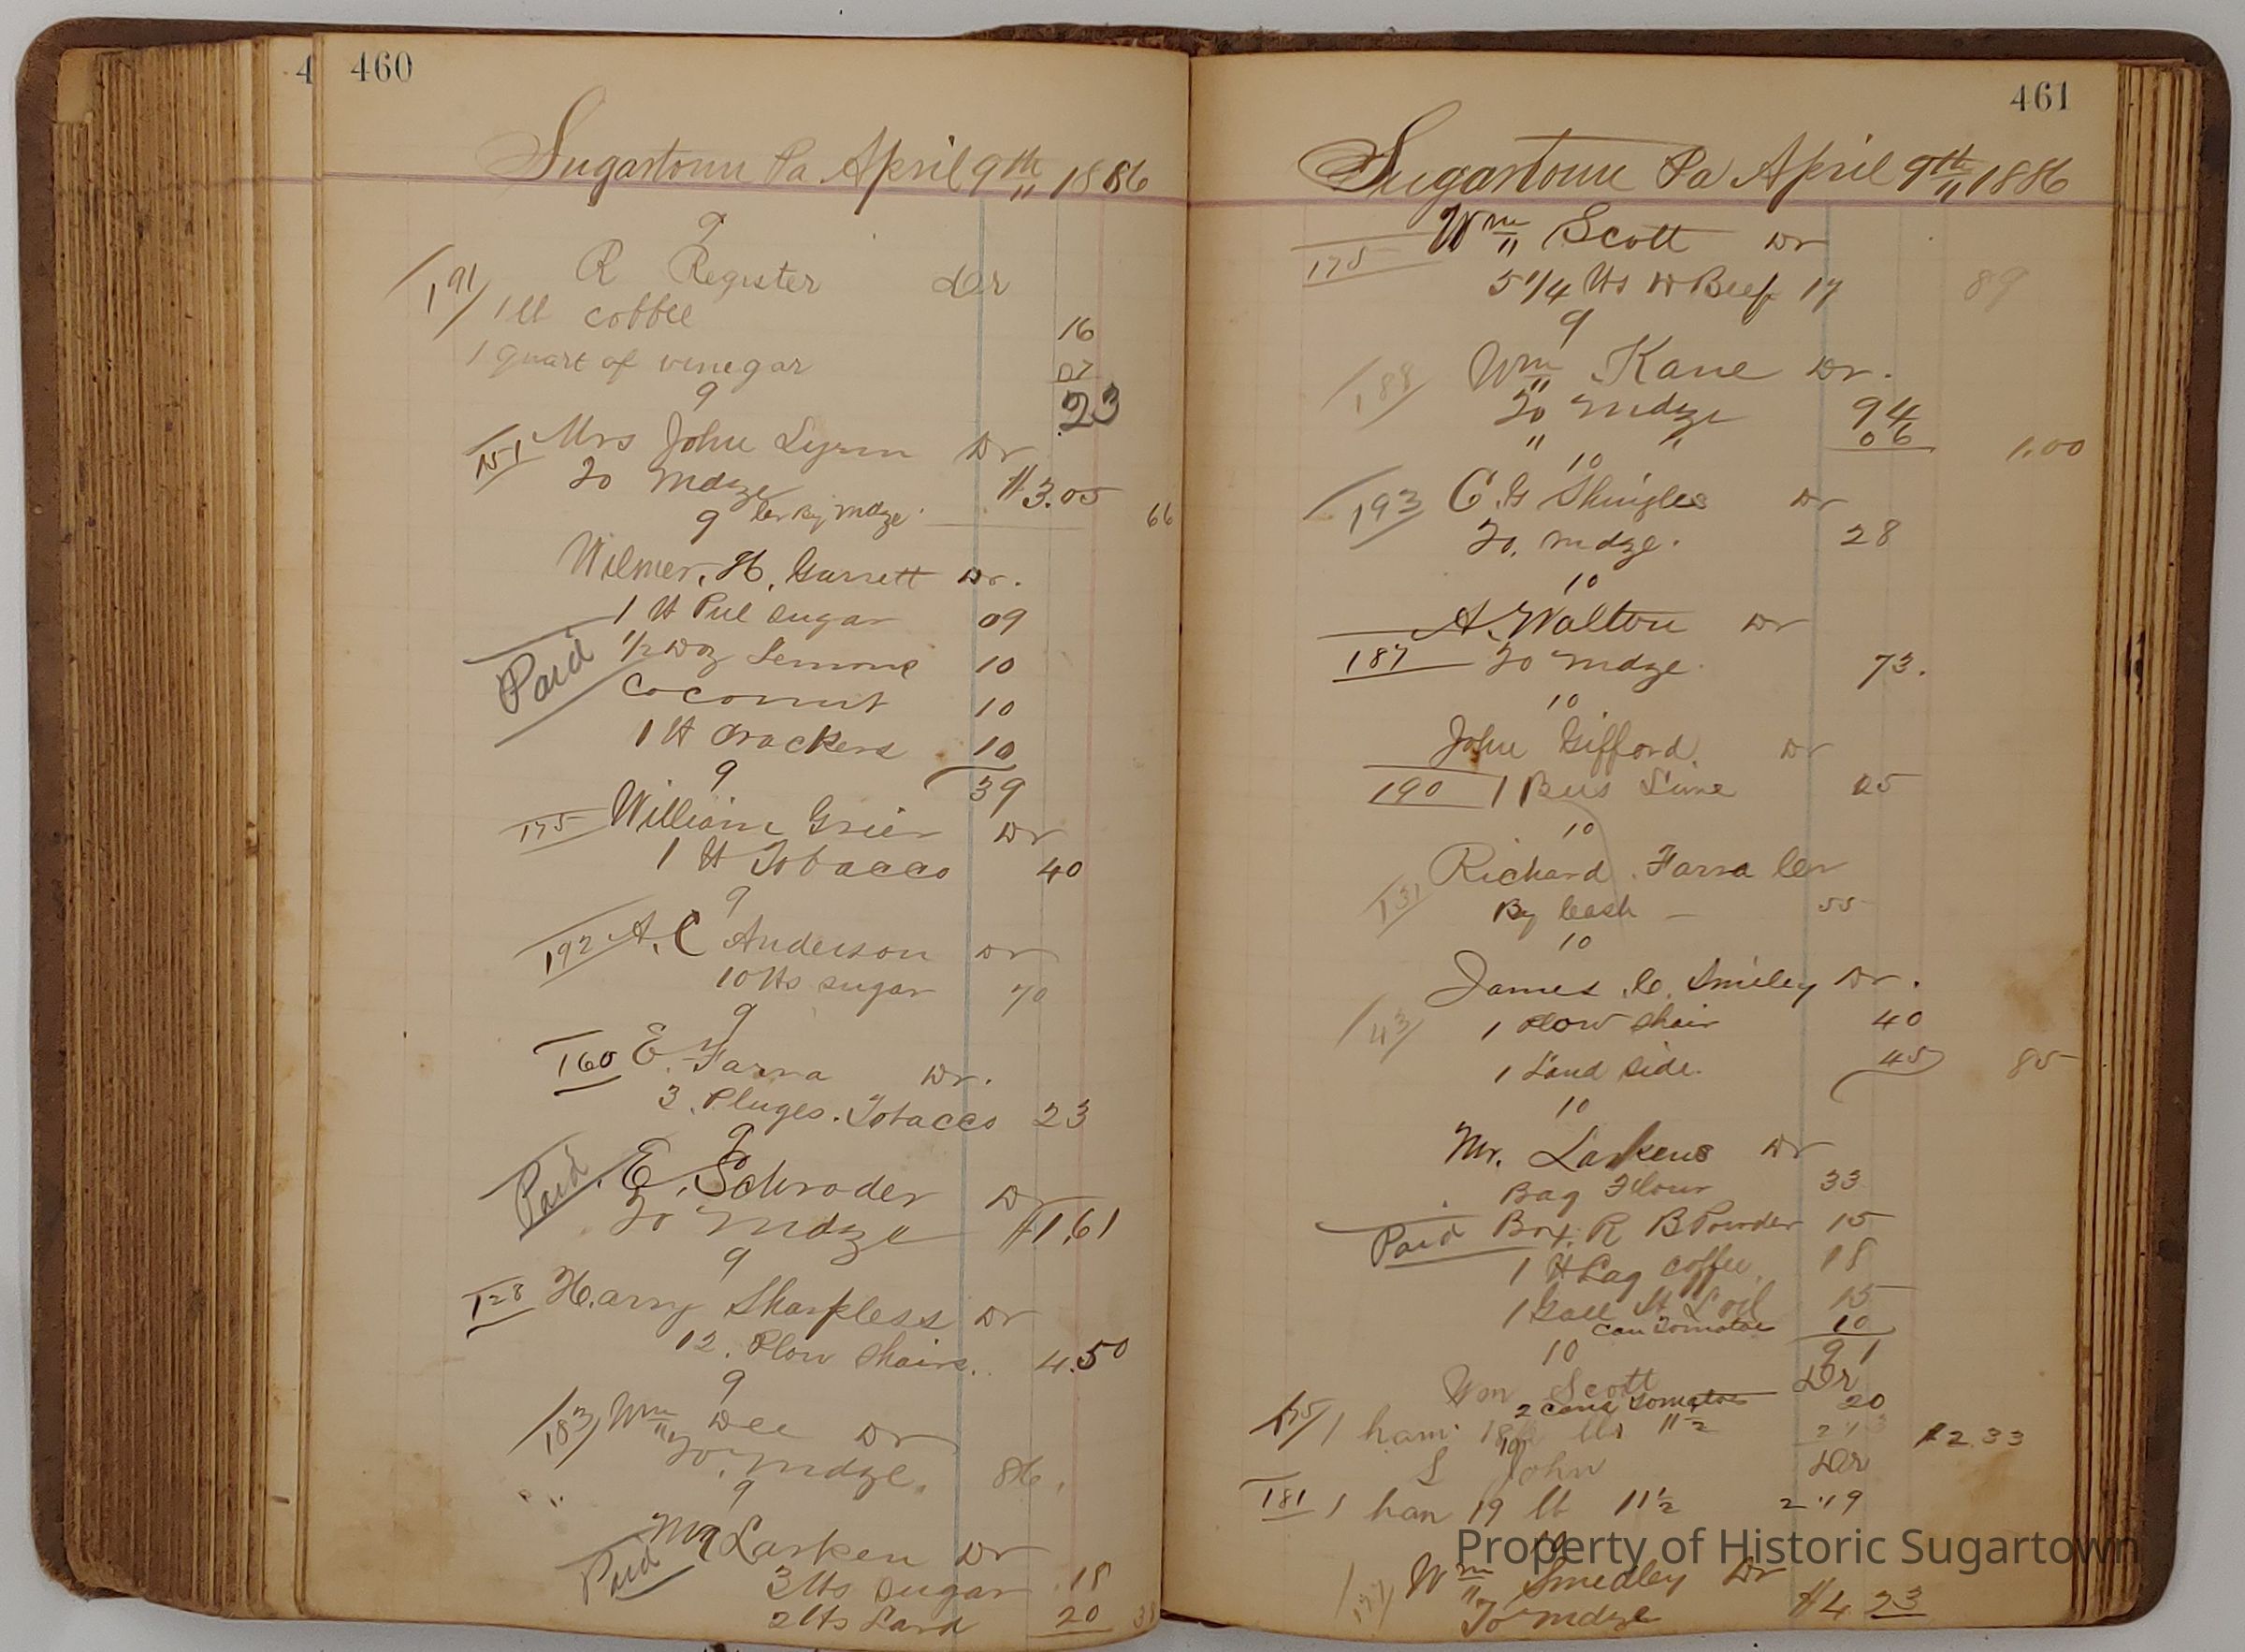 4 460
Sugartown Pa April 9th 1886
9
191 R Register Dr
1 lb coffee 16
1 quart of vinegar 07
9 23
151 Mrs John Lynn Dr
To Mdze $3.05
9 Cr By Mdze 66
Wilmer. H. Garrett Dr.
1 lb Pul sugar 09
Paid 1/2 Doz Lemons 10
Coconut 10
1 lb Crackers 10
9 39
175 William Grier Dr
1 lb Tobacco 40
9
192 A. C Anderson Dr
10 lbs sugar 70
9
160 E. Farra Dr.
3. Pluges. Tobacco 23
9
Paid. E. Schroder Dr
To Mdze $1.61
9
128 Harry Sharpless Dr
12. Plow Shairs. 4.50
9
183 Wm Dee Dr
To. Mdze. 86.
9
Paid Mr Larken Dr
3 lbs Sugar 18
2 lbs Lard 20 38
461
Sugartown Pa April 9th 1886
175 Wm Scott Dr
5 1/4 lbs D Beef 17 89
9
188 Wm Kane Dr.
To Mdze 94
" " 06 1.00
10
193 C. G Shingles Dr
To. Mdze. 28
10
A. Walton Dr
187 To Mdze. 73.
10
John Gifford. Dr
190 1 Bus Lime 25
10
Richard. Farra Cr
131 By Cash — 55
10
James. C. Smiley Dr.
143 1 Plow Shair 40
1 Land side. 45 85
10
Mr. Larkens Dr
Bag Flour 33
Paid Box. R B Powder 15
1 lb Lag Coffee. 18
1 Gall St L oil 15
Can Tomatoe 10
10 91
Wm Scott Dr
2 Cans Tomatoes 20
175 1 ham 18 lbs 11 1/2 2 13 $2.33
10
S John Dr
181 1 han 19 lb 11 1/2 2.19
10
Property of Historic Sugartown
177 Wm Smedley Dr
To Mdze $4 23